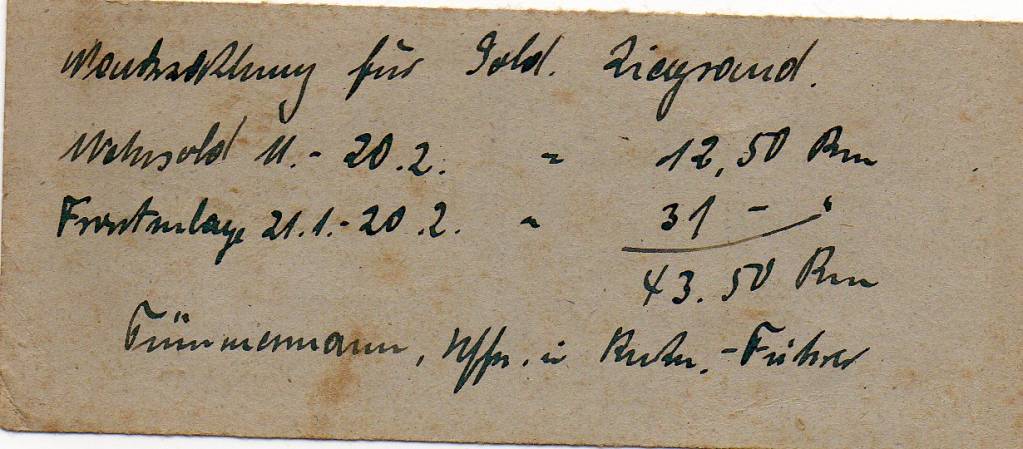 für Sold. Ziegrand.
Wehrsold 11.- 20.2. = 12,50 Rm
Frontzulage 21.1.- 20.2. = 31 - "
43.50 Rm
Tümmermann, Uffz. u. -Führer